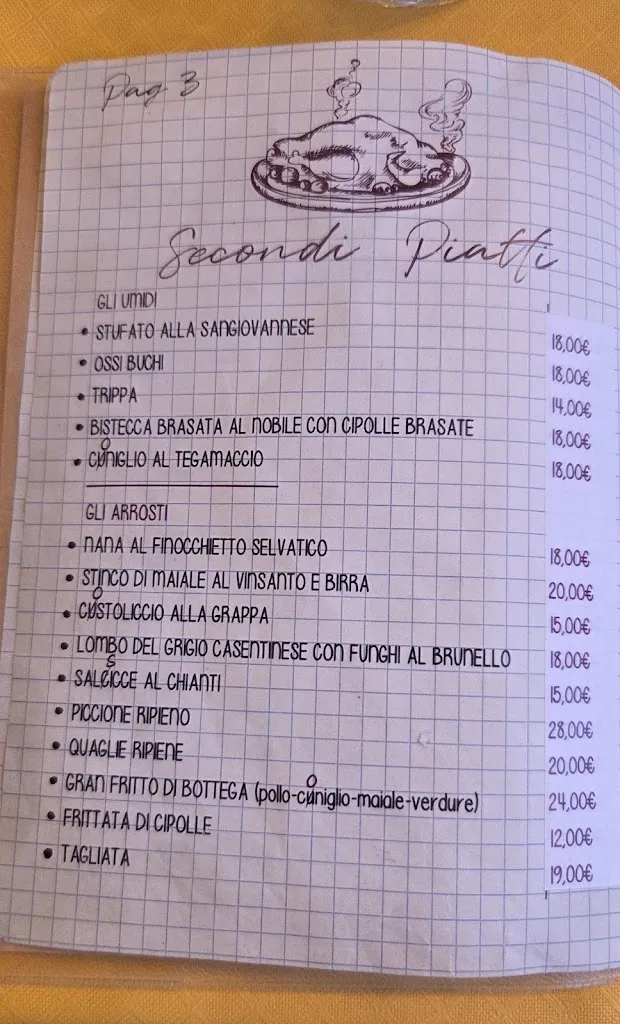 Pag 3
Secondi Piatti
GLI UMIDI
• STUFATO ALLA SANGIOVANNESE 18,00€
• OSSI BUCHI 18,00€
• TRIPPA 14,00€
• BISTECCA BRASATA AL NOBILE CON CIPOLLE BRASATE 18,00€
• CONIGLIO AL TEGAMACCIO 18,00€
GLI ARROSTI
• NANA AL FINOCCHIETTO SELVATICO 18,00€
• STINCO DI MAIALE AL VINSANTO E BIRRA 20,00€
• COSTOLICCIO ALLA GRAPPA 15,00€
• LOMBO DEL GRIGIO CASENTINESE CON FUNGHI AL BRUNELLO 18,00€
• SALSICCE AL CHIANTI 15,00€
• PICCIONE RIPIENO 28,00€
• QUAGLIE RIPIENE 20,00€
• GRAN FRITTO DI BOTTEGA (pollo-coniglio-maiale-verdure) 24,00€
• FRITTATA DI CIPOLLE 12,00€
• TAGLIATA 19,00€